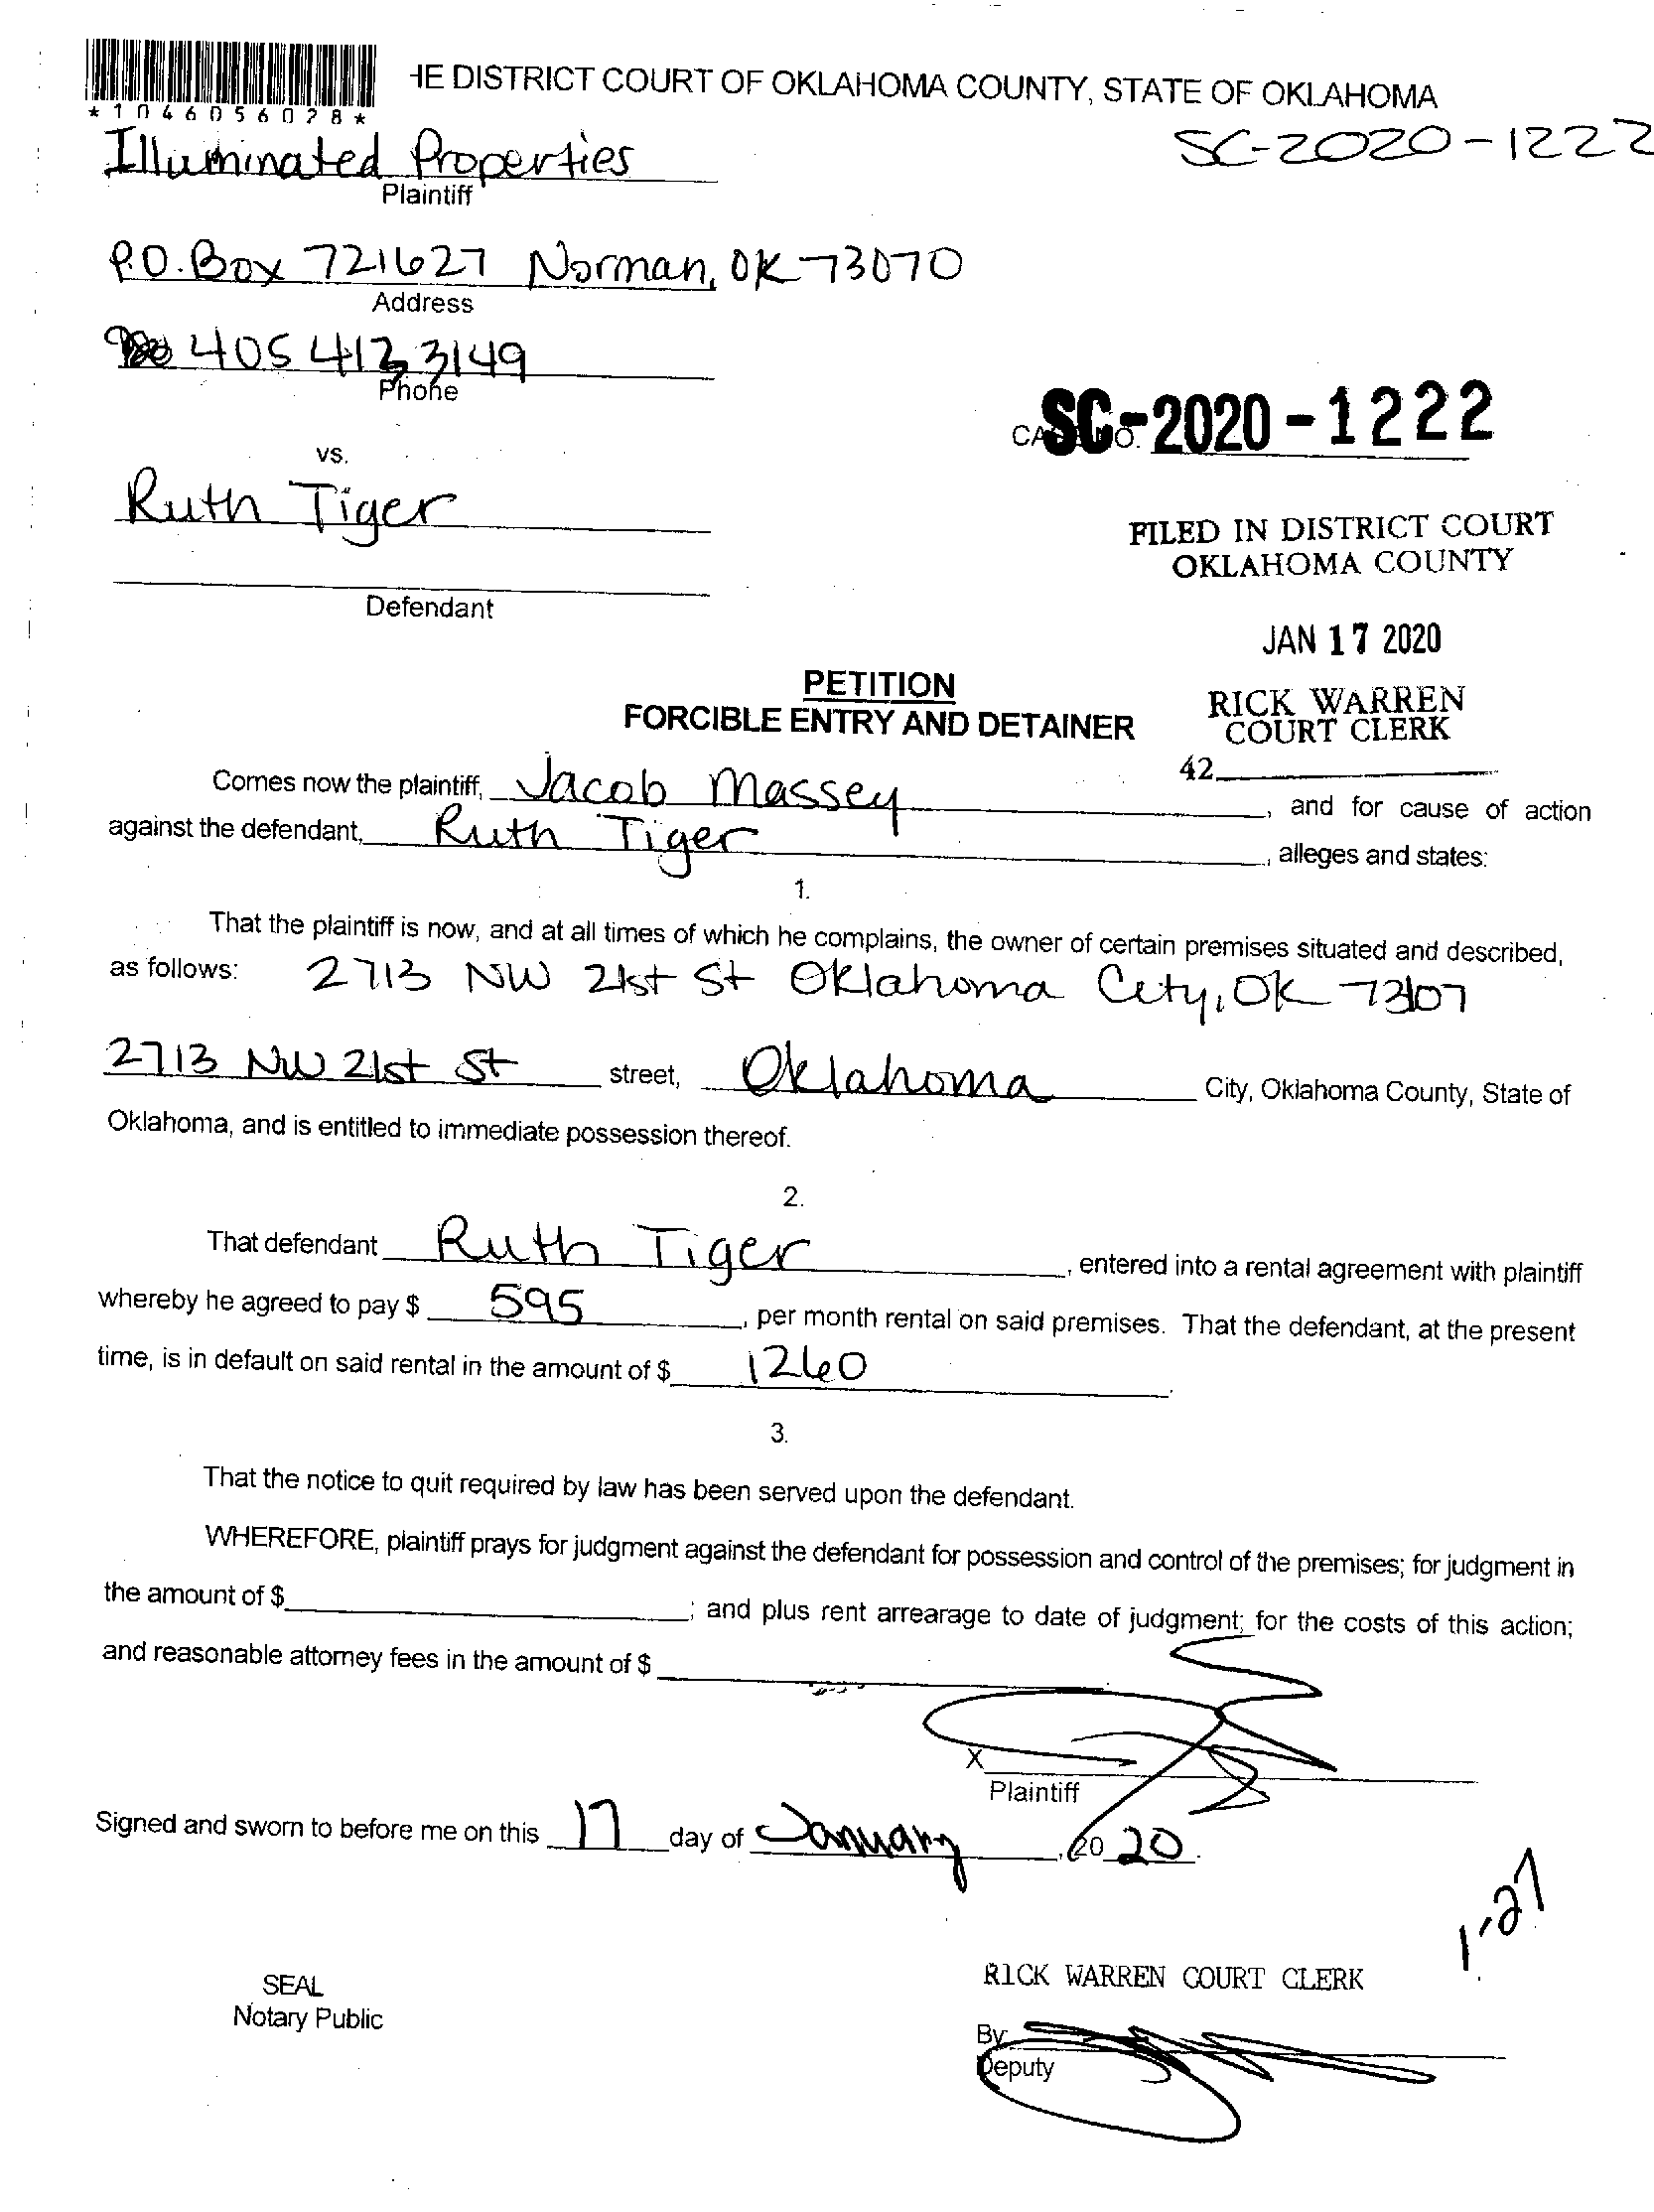 *1046056028*
HE DISTRICT COURT OF OKLAHOMA COUNTY, STATE OF OKLAHOMA
SC-2020-1222
Illuminated Properties
Plaintiff
P.O. Box 721627 Norman, OK 73070
Address
405 413 3149
Phone
SC-2020-1222
vs.
Ruth Tiger
FILED IN DISTRICT COURT
OKLAHOMA COUNTY
Defendant
JAN 17 2020
PETITION
FORCIBLE ENTRY AND DETAINER
RICK WARREN
COURT CLERK
42
Comes now the plaintiff, Jacob Massey, and for cause of action
against the defendant, Ruth Tiger, alleges and states:
1.
That the plaintiff is now, and at all times of which he complains, the owner of certain premises situated and described,
as follows: 2713 NW 21st St Oklahoma City, OK 73107
2713 NW 21st St street, Oklahoma City, Oklahoma County, State of
Oklahoma, and is entitled to immediate possession thereof.
2.
That defendant Ruth Tiger, entered into a rental agreement with plaintiff
whereby he agreed to pay $ 595, per month rental on said premises. That the defendant, at the present
time, is in default on said rental in the amount of $ 1260.
3.
That the notice to quit required by law has been served upon the defendant.
WHEREFORE, plaintiff prays for judgment against the defendant for possession and control of the premises; for judgment in
the amount of $ ; and plus rent arrearage to date of judgment; for the costs of this action;
and reasonable attorney fees in the amount of $
X
Plaintiff
Signed and sworn to before me on this 17 day of January, 20 20.
1-27
RICK WARREN COURT CLERK
SEAL
Notary Public
By:
Deputy